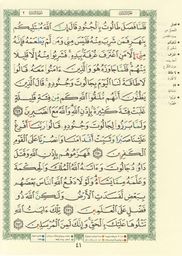 فَلَمَّا فَصَلَ طَالُوتُ بِالْجُنُودِ قَالَ إِنَّ اللَّهَ مُبْتَلِيكُم
بِنَهَرٍ فَمَن شَرِبَ مِنْهُ فَلَيْسَ مِنِّي وَمَن لَّمْ يَطْعَمْهُ فَإِنَّهُ
مِنِّي إِلَّا مَنِ اغْتَرَفَ غُرْفَةً بِيَدِهِ فَشَرِبُوا مِنْهُ إِلَّا قَلِيلًا
مِّنْهُمْ فَلَمَّا جَاوَزَهُ هُوَ وَالَّذِينَ آمَنُوا مَعَهُ قَالُوا
لَا طَاقَةَ لَنَا الْيَوْمَ بِجَالُوتَ وَجُنُودِهِ قَالَ الَّذِينَ
يَظُنُّونَ أَنَّهُم مُّلَاقُوا اللَّهِ كَم مِّن فِئَةٍ قَلِيلَةٍ
غَلَبَتْ فِئَةً كَثِيرَةً بِإِذْنِ اللَّهِ وَاللَّهُ مَعَ الصَّابِرِينَ ٢٤٩
وَلَمَّا بَرَزُوا لِجَالُوتَ وَجُنُودِهِ قَالُوا رَبَّنَا أَفْرِغْ عَلَيْنَا
صَبْرًا وَثَبِّتْ أَقْدَامَنَا وَانصُرْنَا عَلَى الْقَوْمِ
الْكَافِرِينَ ٢٥٠ فَهَزَمُوهُم بِإِذْنِ اللَّهِ وَقَتَلَ
دَاوُودُ جَالُوتَ وَآتَاهُ اللَّهُ الْمُلْكَ وَالْحِكْمَةَ
وَعَلَّمَهُ مِمَّا يَشَاءُ وَلَوْلَا دَفْعُ اللَّهِ النَّاسَ بَعْضَهُم
بِبَعْضٍ لَّفَسَدَتِ الْأَرْضُ وَلَكِنَّ اللَّهَ ذُو
فَضْلٍ عَلَى الْعَالَمِينَ ٢٥١ تِلْكَ آيَاتُ اللَّهِ
نَتْلُوهَا عَلَيْكَ بِالْحَقِّ وَإِنَّكَ لَمِنَ الْمُرْسَلِينَ ٢٥٢
٤١